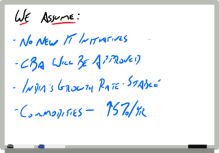 WE ASSUME:
- NO NEW IT INITIATIVES
- CBA WILL BE APPROVED
- INDIA'S GROWTH RATE: STABLE
- COMMODITIES -